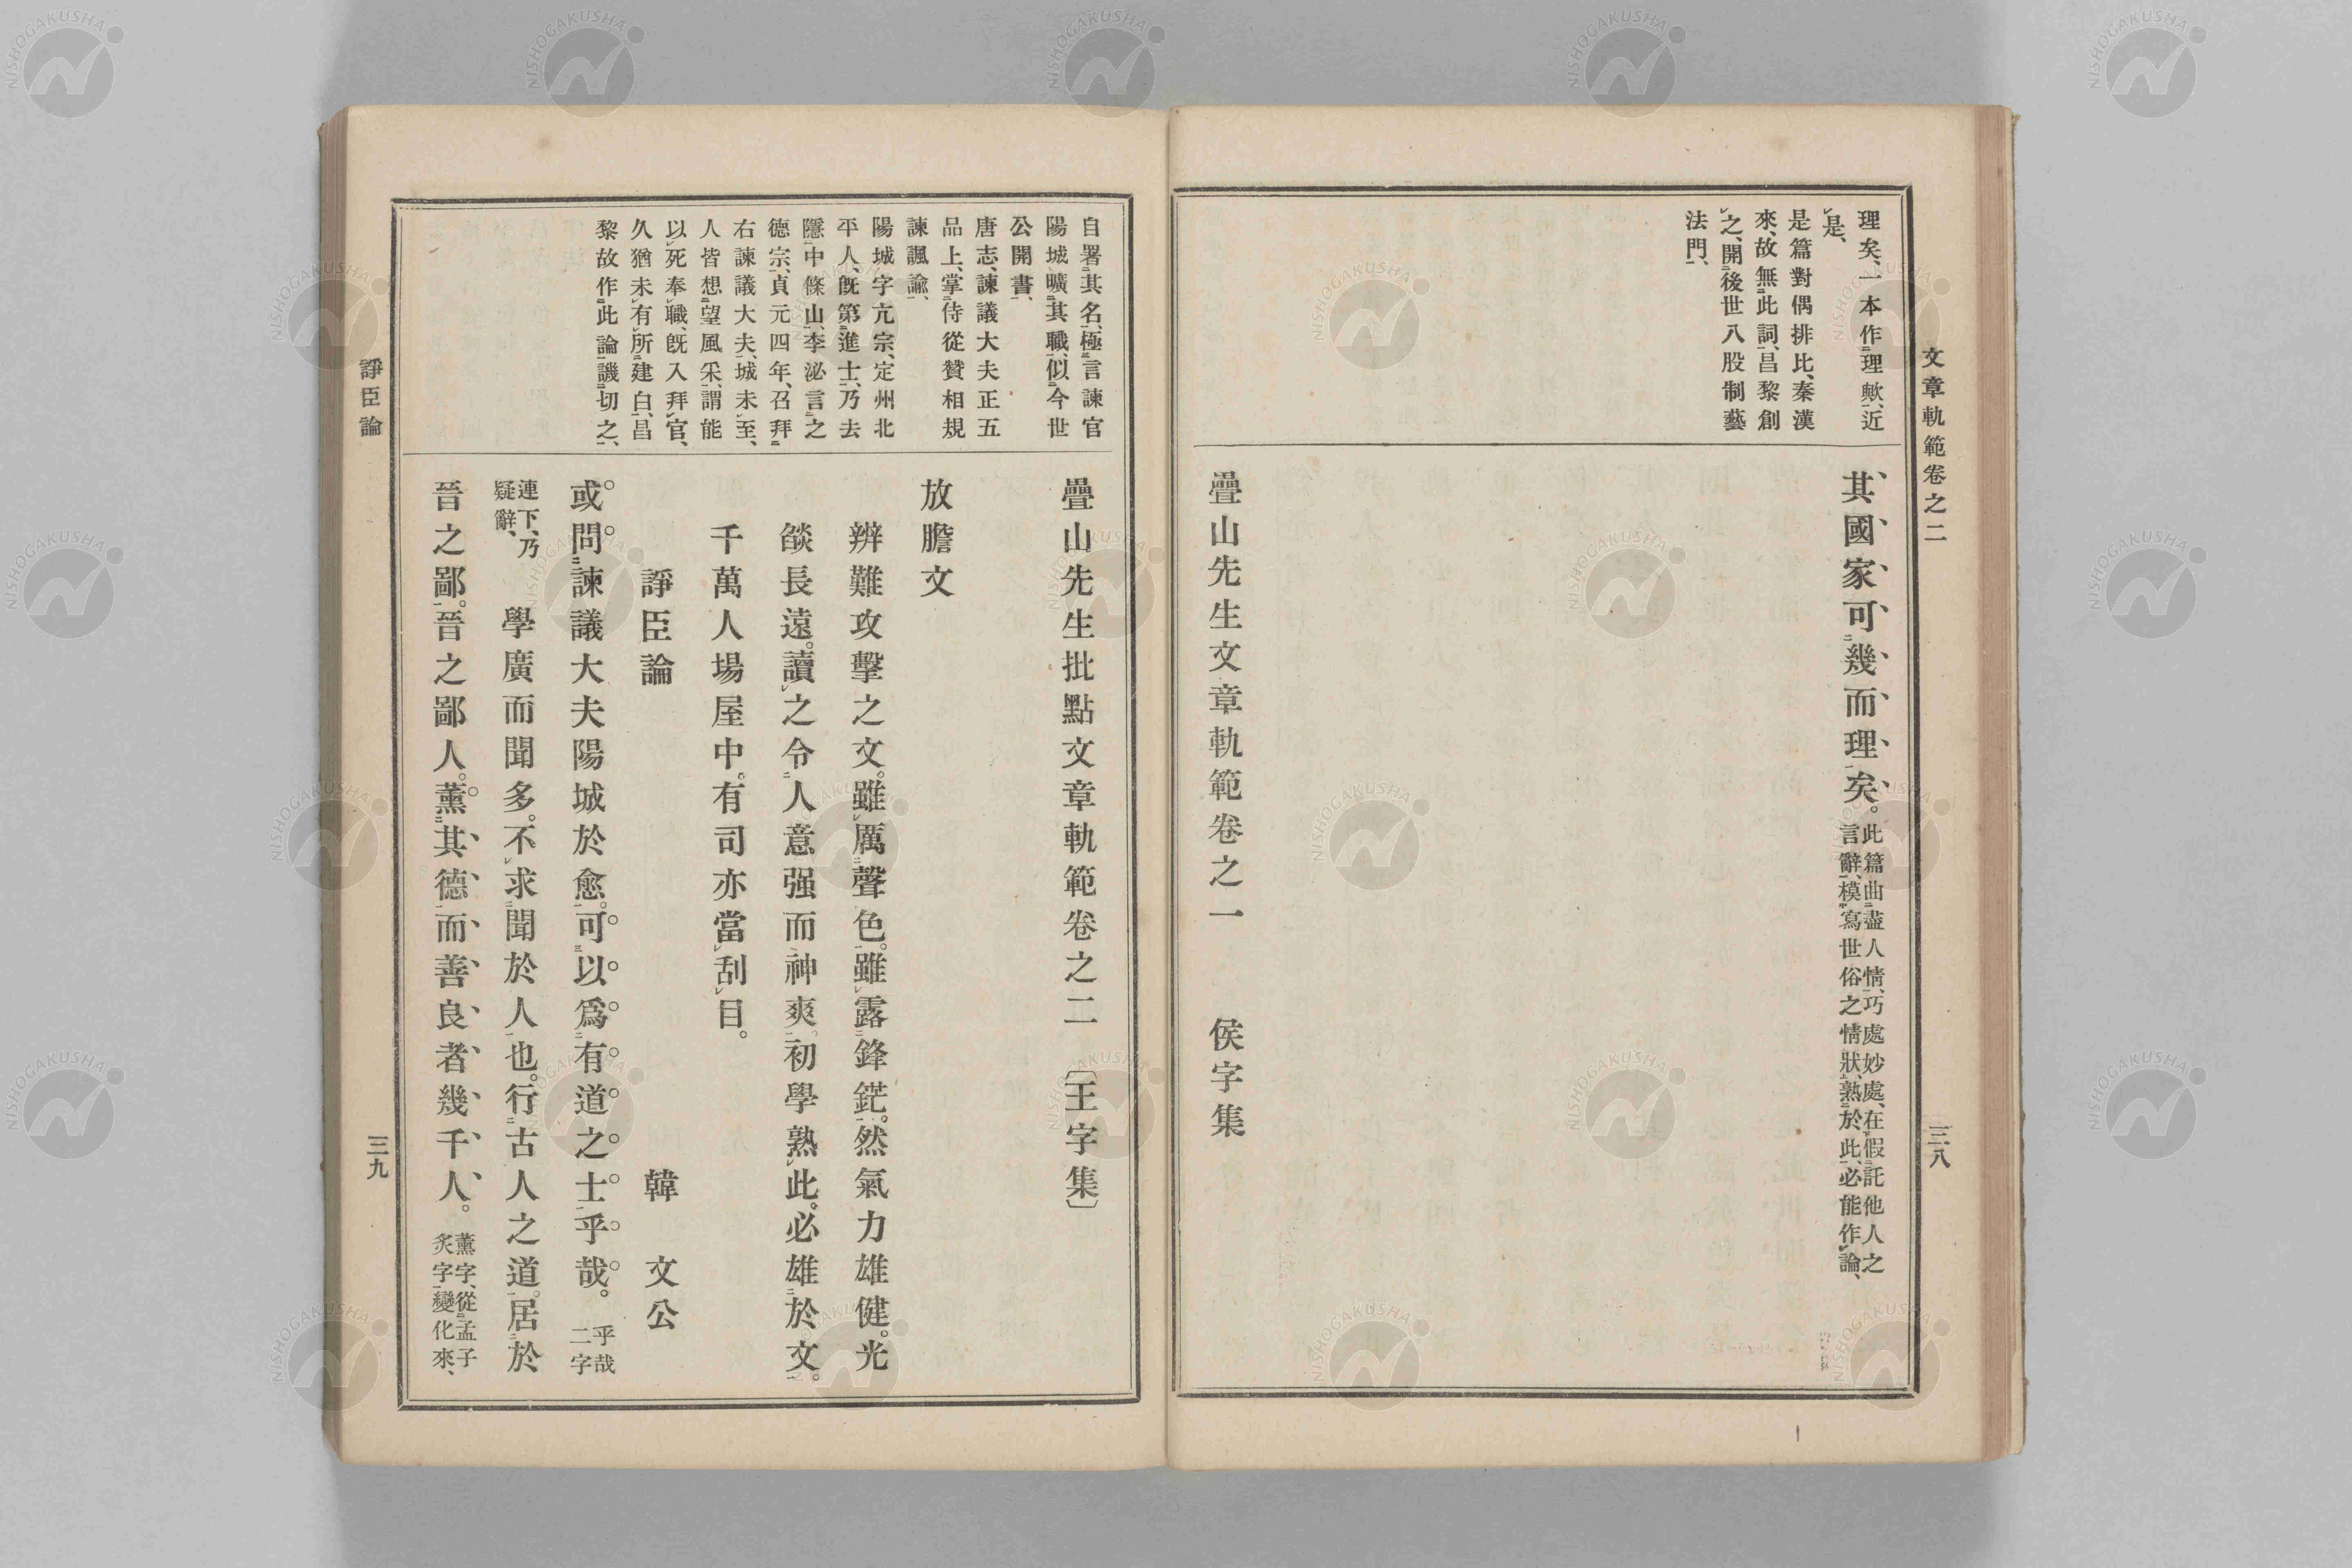 文章軌範卷之二
三八
理矣、一本作理歟、近
是、
是篇對偶排比、秦漢
來、故無此詞、昌黎創
之、開後世八股制藝
法門、
其國家可幾而理矣。此篇曲盡人情、巧處妙處、在假託他人之
言辭、模寫世俗之情狀、熟於此、必能作論、
疊山先生文章軌範卷之一　侯字集
自署其名、極言諫官
陽城曠其職、似今世
公開書、
唐志、諫議大夫正五
品上、掌侍從贊相規
諫諷諭、
陽城字亢宗、定州北
平人、既第進士、乃去
隱中條山、李泌言之
德宗、貞元四年、召拜
右諫議大夫、城未至、
人皆想望風采、謂能
以死奉職、既入拜官、
久猶未有所建白、昌
黎故作此論譏切之、
疊山先生批點文章軌範卷之二〔王字集〕
放膽文
辨難攻擊之文。雖厲聲色。雖露鋒鋩。然氣力雄健。光
燄長遠。讀之令人意强而神爽。初學熟此。必雄於文。
千萬人場屋中。有司亦當刮目。
諍臣論　韓文公
或問諫議大夫陽城於愈。可以爲有道之士乎哉。乎哉
二字
連下、乃
疑辭、
學廣而聞多。不求聞於人也。行古人之道。居於
晉之鄙。晉之鄙人。薰其德而善良者幾千人。薰字、從孟子
炙字變化來、
諍臣論
三九